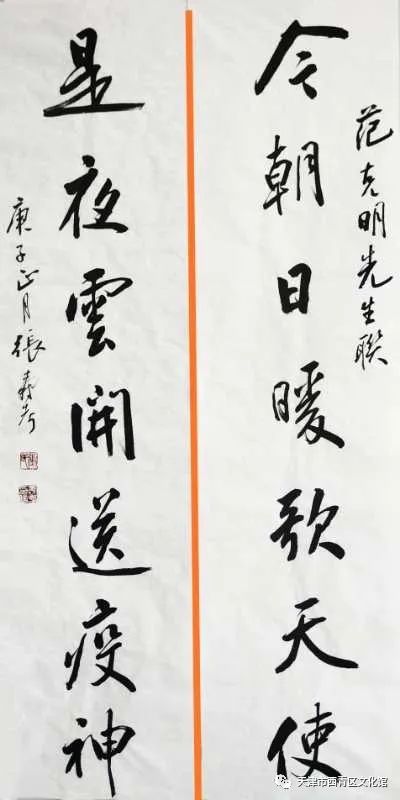 范克明先生联
今朝日暖歌天使
是夜雲開送疫神
庚子正月張壽考
天津市西青区文化馆